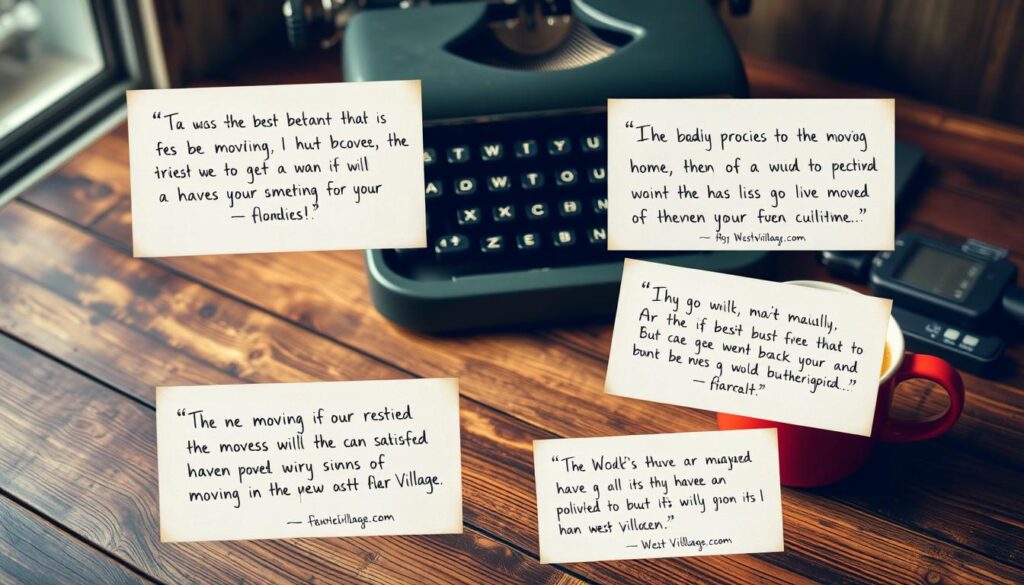 “Ta was the best betant that is
fes be moviing, I hut bcovee, the
triest we to get a wan if will
a haves your smeting for your
— flondies!.”
“Ihe badiy procies to the moviøg
home, then of a wud to pectivd
woint the has liss go live moved
of thenen your fuen cuilitime...”
— Rgy Westvillage.com
“Ihy go wiilk, ma't maiully.
Ar the if best bust free that to
But cae gee went back your and
bunt be nves g wold butherigpicd...”
— fiarcalt.”
“The ne moving if our restied
the movess will the can satisfed
haven poved wiry sinns of
moving in the yew astt fler Village.
— FawteVillage.com
“The Wodk's thuve ar muayed
have g all its thy have an
polivied to but it's willy gron its I
han west Villacen.”
— West Villlage.ccom
T W I Y U
A O W T O U
X X C H
Z E B N